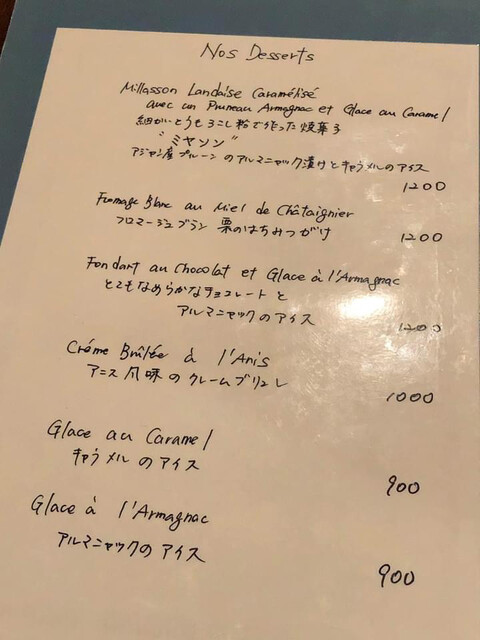 Nos Desserts
Millasson Landaise Caramélisé
avec un Pruneau Armagnac et Glace au Caramel
細かいとうもろこし粉で作った焼菓子
"ミヤソン"
アジャン産プルーンのアルマニャック漬けとキャラメルのアイス
1200
Fromage Blanc au Miel de Châtaignier
フロマージュブラン 栗のはちみつがけ
1200
Fondant au Chocolat et Glace à l'Armagnac
とてもなめらかなチョコレートと
アルマニャックのアイス
1200
Créme Brûlée à l'Anis
アニス風味のクレームブリュレ
1000
Glace au Caramel
キャラメルのアイス
900
Glace à l'Armagnac
アルマニャックのアイス
900